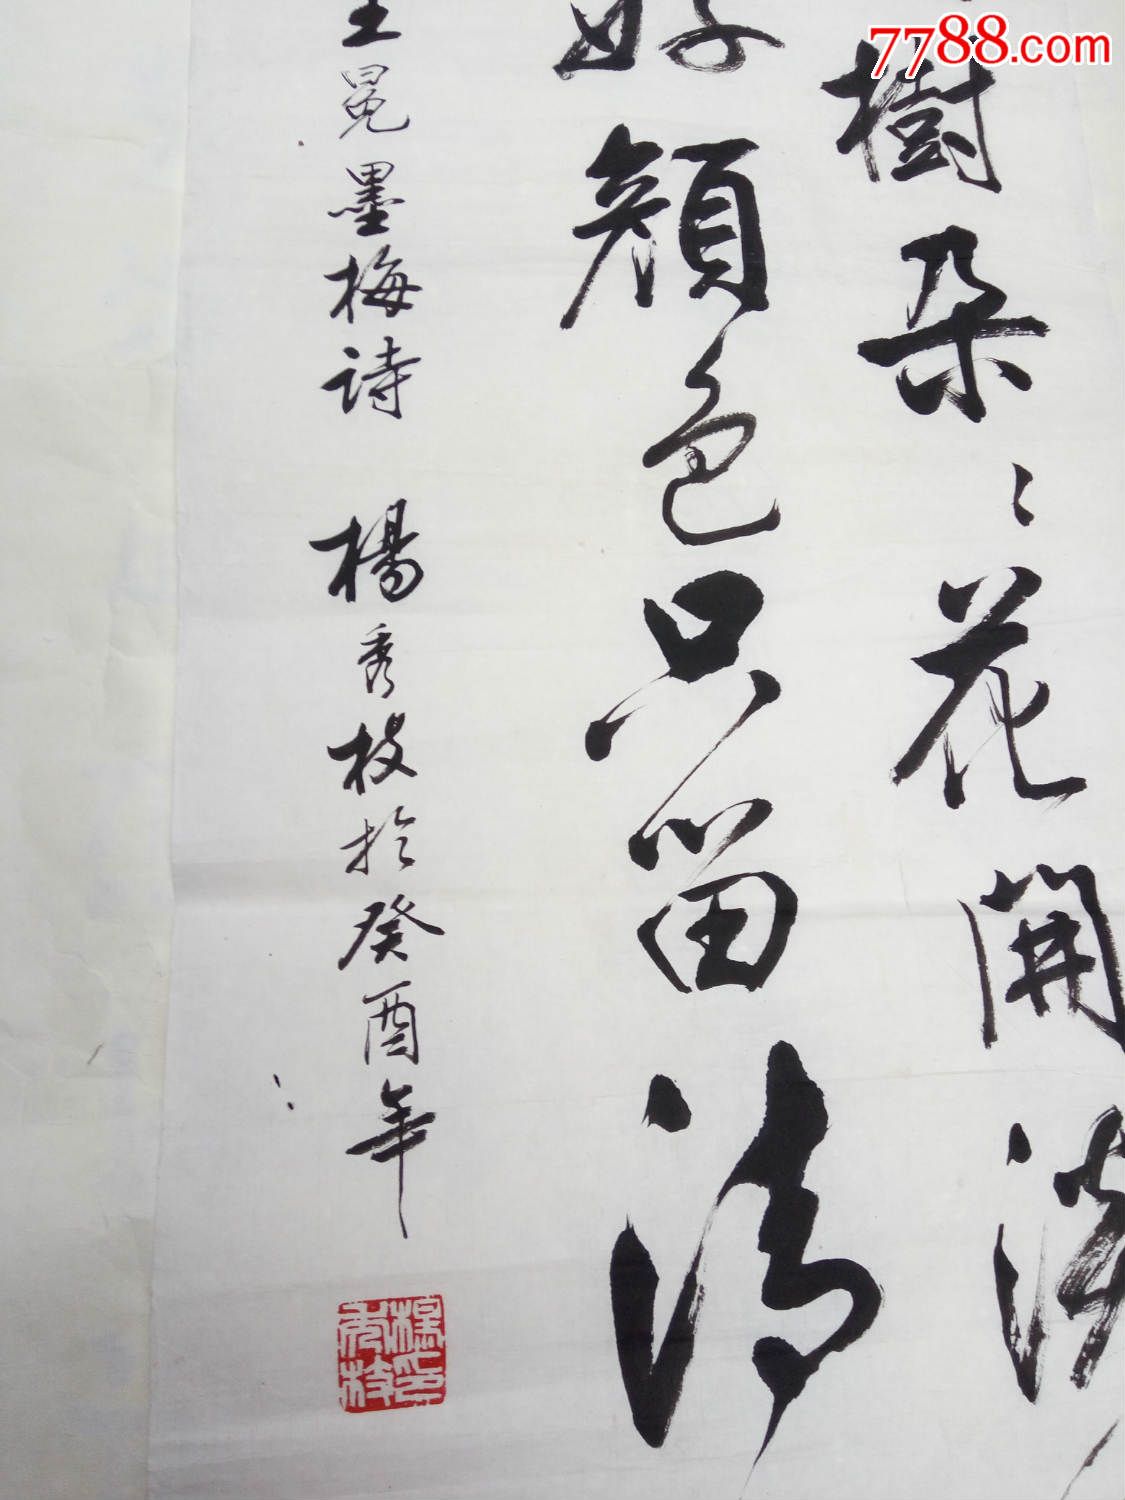 7788.com
樹朵〻花開淡
好顏色只留清
王冕墨梅诗 楊秀枝於癸酉年
楊秀枝印